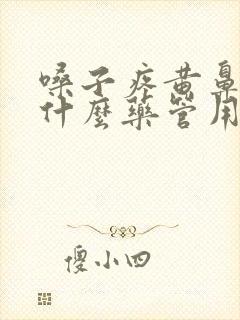 嗓子疼黄鼻
什麼藥管用
傻小四